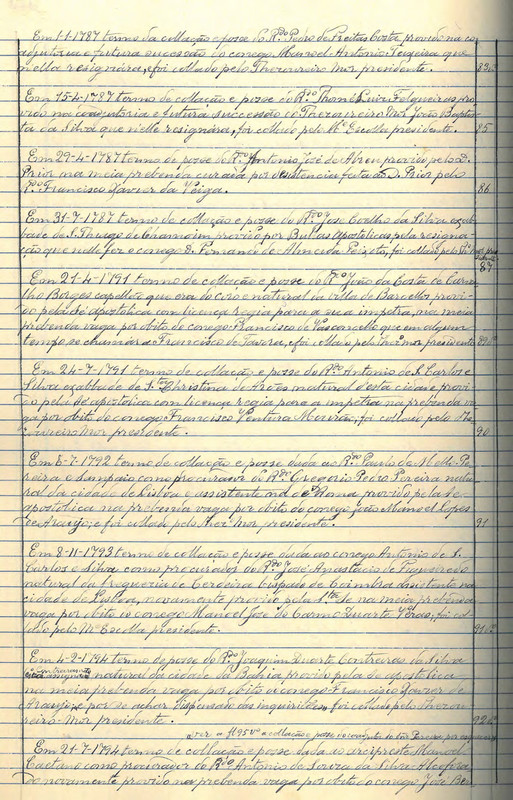 Em 1-1-1787 termo da collação e posse do R.do Pedro de Freitas Costa, provido na co
adjutoria e futura successão do conego Manoel Antonio Teixeira que
n'ella resignára, e foi collado pelo Thesoureiro Mór presidente. 83
Em 15-4-1787 termo de collação e posse do R.do Thomé Luiz Felgueiras pro
vido na coadjutoria e futura successão do Thesoureiro Mór João Baptis
ta da Silva que n'elle resignára, foi collado pelo M.e Escolla presidente. 85
Em 29-4-1787 termo de posse do R.do Antonio José de Abreu provido pelo D.
Prior na meia prebenda curada por desistencia feita ao D. Prior pelo
R.do Francisco Xavier da Veiga. 86
Em 31-7-1787 termo de collação e posse do R.do José Coelho da Silva exab
bade de S. Thiago de provido por Bullas Apostolicas pela resigna
ção que n'elle fez o conego D. Fernando de Almeida Peixoto, foi collado pelo
87
Em 21-4-1791 termo de collação e posse do R.do João da Costa de Carva
lho Borges capellão que era do côro e natural da villa de Barcellos provi
do pela sé apostolica com licença regia para a sua impetra, na meia
prebenda vaga por obito do conego Francisco de Vasconcellos que em algum
tempo se chamára Francisco de Tavora, e foi collado pelo presidente 89
Em 24-7-1791 termo de collação e posse do R.do Antonio de S. Carlos e
Silva exabbade de S.ta Christina de Arões natural d'esta cidade provi
do pela sé apostolica com licença regia para a impetra na prebenda va
ga por obito do conego Francisco Ventura Mourão, foi collado pelo The
soureiro Mór presidente. 90
Em 8-7-1792 termo de collação e posse dada ao R.do Paulo de Mello Pe
reira e Sampaio como procurador do R.do Gregorio Pedro Pereira natu
ral da cidade de Lisboa e assistente na de Roma, provido pela sé
apostolica na prebenda vaga por obito do conego João Manoel Lopes
de Araujo, e foi collado pelo Thez. Mór presidente. 91
Em 8-11-1793 termo de collação e posse dada ao conego Antonio de S.
Carlos e Silva como procurador do R.do José Anastacio de Figueiredo
natural da freguezia de Cerdeira bispado de Coimbra assistente na
cidade de Lisboa, novamente provido pela S.ta Sé na meia prebenda
vaga por obito do conego Manoel José do Carmo Duarte foi col
lado pelo M.e Escolla presidente. 91
Em 4-2-1794 termo de posse do R.do Joaquim Duarte Contreiras da Silva
natural da cidade da Bahia provido pela sé apostolica
na meia prebenda vaga por obito do conego Francisco Xavier de
Araujo, e por se achar dispensado das inquirições foi collado pelo Thezou
reiro Mór presidente. 92
a collação e posse
Em 21-7-1794 termo de collação e posse dada ao arcipreste Manoel
Caetano como procurador do R.do Antonio de Souza da Silva Alcofora
do novamente provido na prebenda vaga por obito do conego José Ben